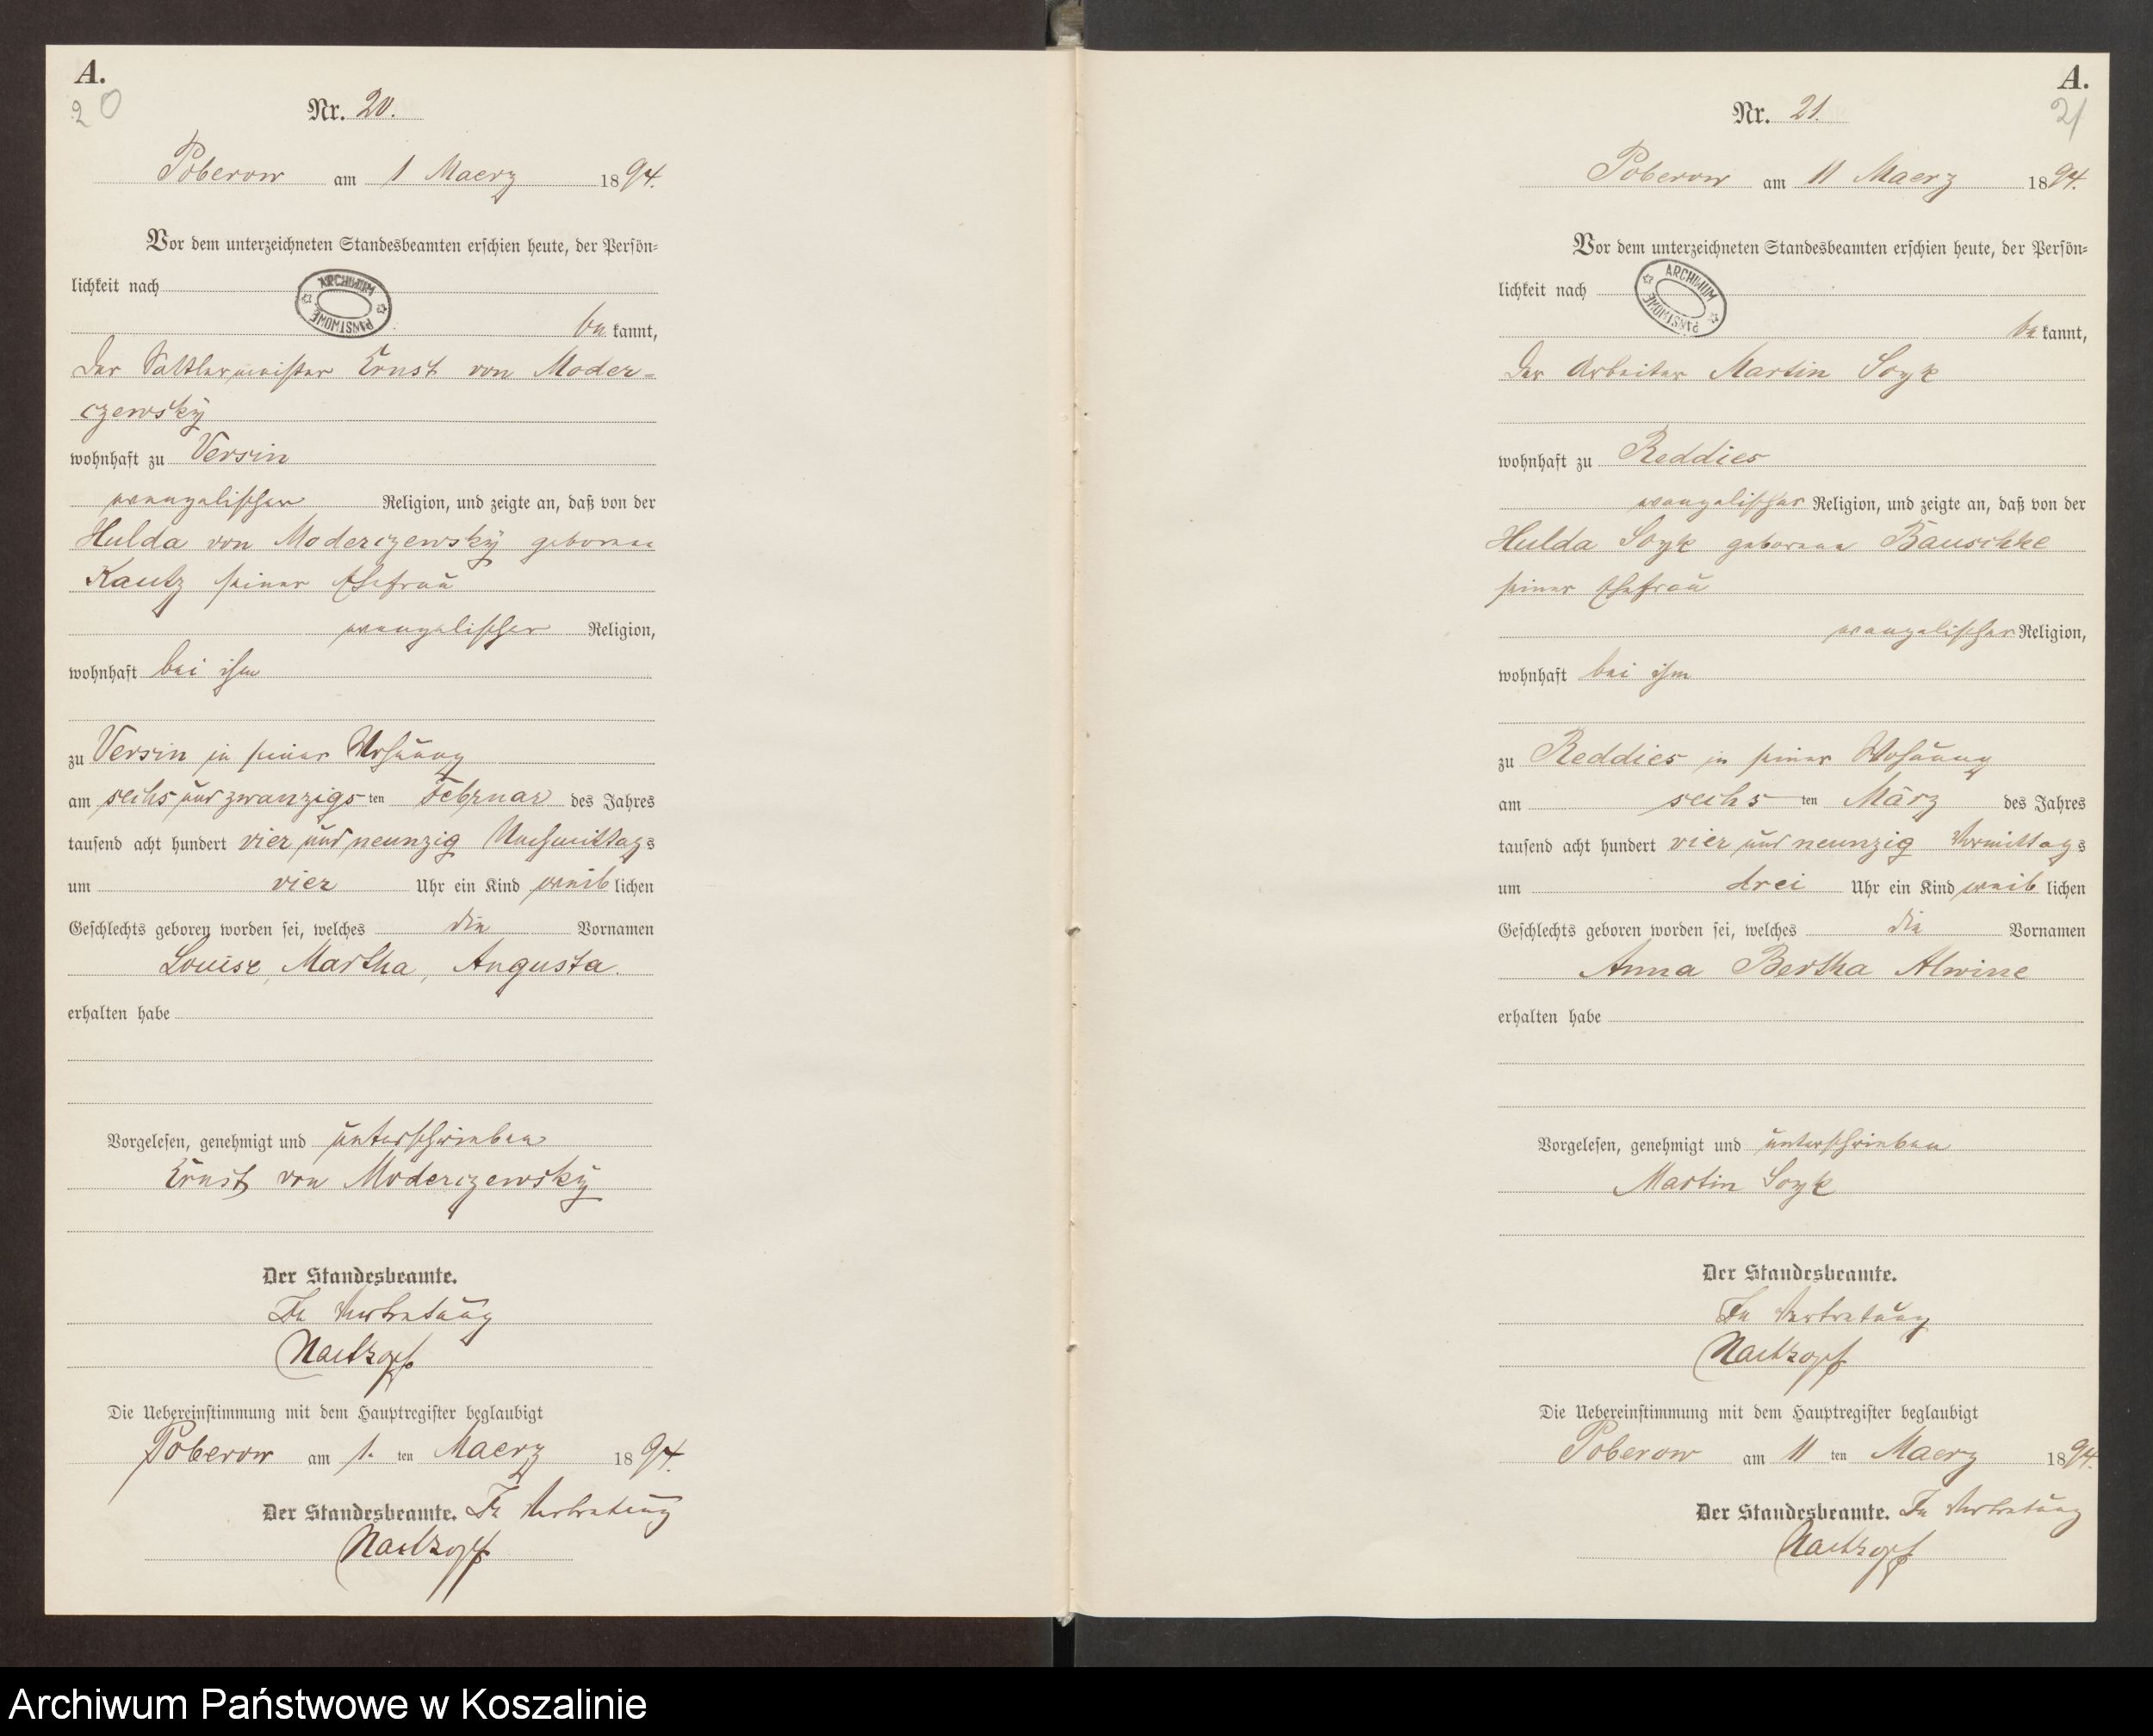 A.
20
Nr. 20.
Poberow am 1 Maerz 1894.
Vor dem unterzeichneten Standesbeamten erschien heute, der Persön=
lichkeit nach
ARCHIWUM PAŃSTWOWE
be kannt,
Der Sattlermeister Ernst von Moder=
czewsky
wohnhaft zu Versin
evangelischer Religion, und zeigte an, daß von der
Hulda von Moderczewsky geborene
Kautz seiner Ehefrau
evangelischer Religion,
wohnhaft bei ihm
zu Versin in seiner Wohnung
am sechs und zwanzigs ten Februar des Jahres
tausend acht hundert vier und neunzig Nachmittags
um vier Uhr ein Kind weib lichen
Geschlechts geboren worden sei, welches die Vornamen
Louise, Martha, Augusta.
erhalten habe
Vorgelesen, genehmigt und unterschrieben
Ernst von Moderczewsky
Der Standesbeamte.
In Vertretung
Die Uebereinstimmung mit dem Hauptregister beglaubigt
Poberow am 1. ten Maerz 1894.
Der Standesbeamte. In Vertretung
A.
21
Nr. 21.
Poberow am 11 Maerz 1894.
Vor dem unterzeichneten Standesbeamten erschien heute, der Persön=
lichkeit nach
ARCHIWUM PAŃSTWOWE
be kannt,
Der Arbeiter Martin Soyk
wohnhaft zu Reddies
evangelischer Religion, und zeigte an, daß von der
Hulda Soyk geborene Bauschke
seiner Ehefrau
evangelischer Religion,
wohnhaft bei ihm
zu Reddies in seiner Wohnung
am sechs ten März des Jahres
tausend acht hundert vier und neunzig Vormittags
um drei Uhr ein Kind weib lichen
Geschlechts geboren worden sei, welches die Vornamen
Anna Bertha Alwine
erhalten habe
Vorgelesen, genehmigt und unterschrieben
Martin Soyk
Der Standesbeamte.
In Vertretung
Die Uebereinstimmung mit dem Hauptregister beglaubigt
Poberow am 11 ten Maerz 1894.
Der Standesbeamte. In Vertretung
Archiwum Państwowe w Koszalinie